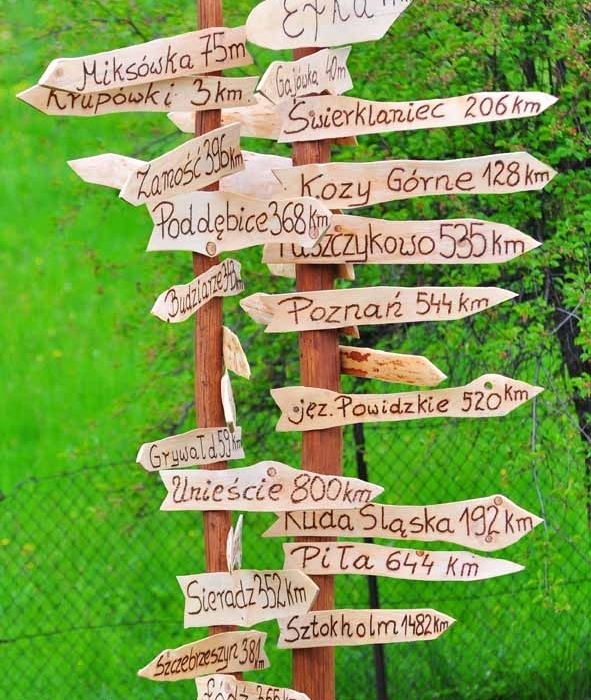 Miksówka 75m
Gajówka 40m
Krupówki 3km
Świerklaniec 206km
Zamość 396km
Kozy Górne 128km
Poddębice 368km
Puszczykowo 535km
Budziarze 343km
Poznań 544km
jęz. Powidzkie 520km
Grywałd 59km
Unieście 800km
Ruda Śląska 192km
Piła 644 km
Sieradz 352km
Sztokholm 1482km
Szczebrzeszyn 381km